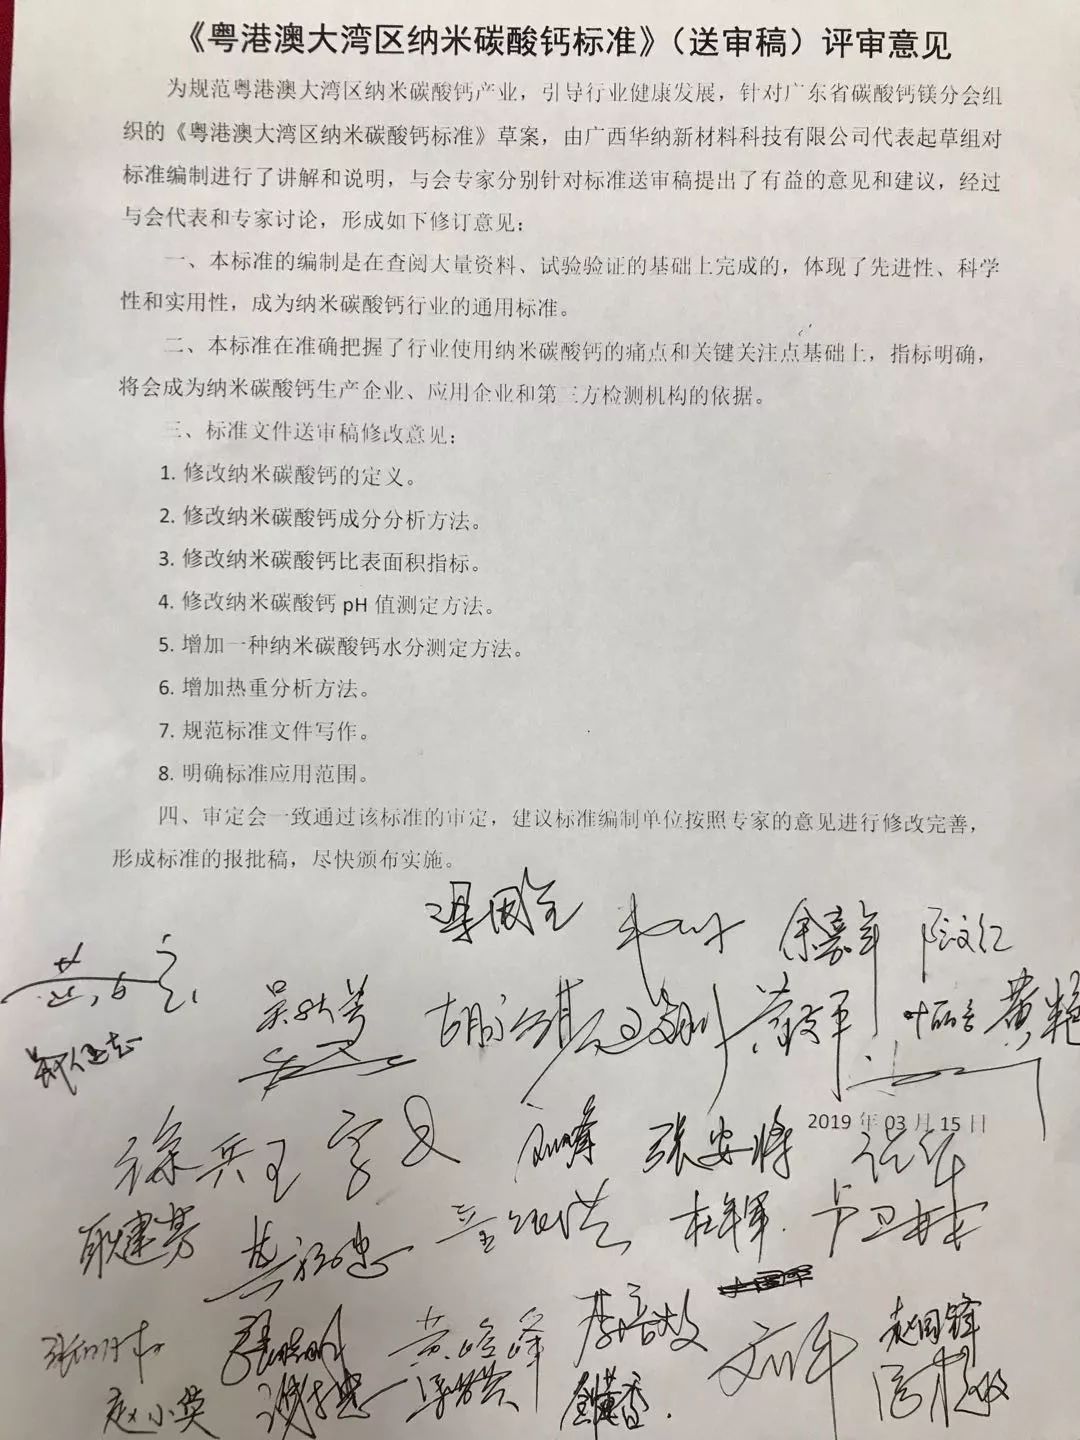 《粤港澳大湾区纳米碳酸钙标准》（送审稿）评审意见
为规范粤港澳大湾区纳米碳酸钙产业，引导行业健康发展，针对广东省碳酸钙镁分会组
织的《粤港澳大湾区纳米碳酸钙标准》草案，由广西华纳新材料科技有限公司代表起草组对
标准编制进行了讲解和说明，与会专家分别针对标准送审稿提出了有益的意见和建议，经过
与会代表和专家讨论，形成如下修订意见：
一、本标准的编制是在查阅大量资料、试验验证的基础上完成的，体现了先进性、科学
性和实用性，成为纳米碳酸钙行业的通用标准。
二、本标准在准确把握了行业使用纳米碳酸钙的痛点和关键关注点基础上，指标明确，
将会成为纳米碳酸钙生产企业、应用企业和第三方检测机构的依据。
三、标准文件送审稿修改意见：
1. 修改纳米碳酸钙的定义。
2. 修改纳米碳酸钙成分分析方法。
3. 修改纳米碳酸钙比表面积指标。
4. 修改纳米碳酸钙 pH 值测定方法。
5. 增加一种纳米碳酸钙水分测定方法。
6. 增加热重分析方法。
7. 规范标准文件写作。
8. 明确标准应用范围。
四、审定会一致通过该标准的审定，建议标准编制单位按照专家的意见进行修改完善，
形成标准的报批稿，尽快颁布实施。
余嘉年
黄艳
2019 年 03 月 15 日
徐兵
张安将
耿建芳
杜年军
黄峰
赵国锋
赵小英